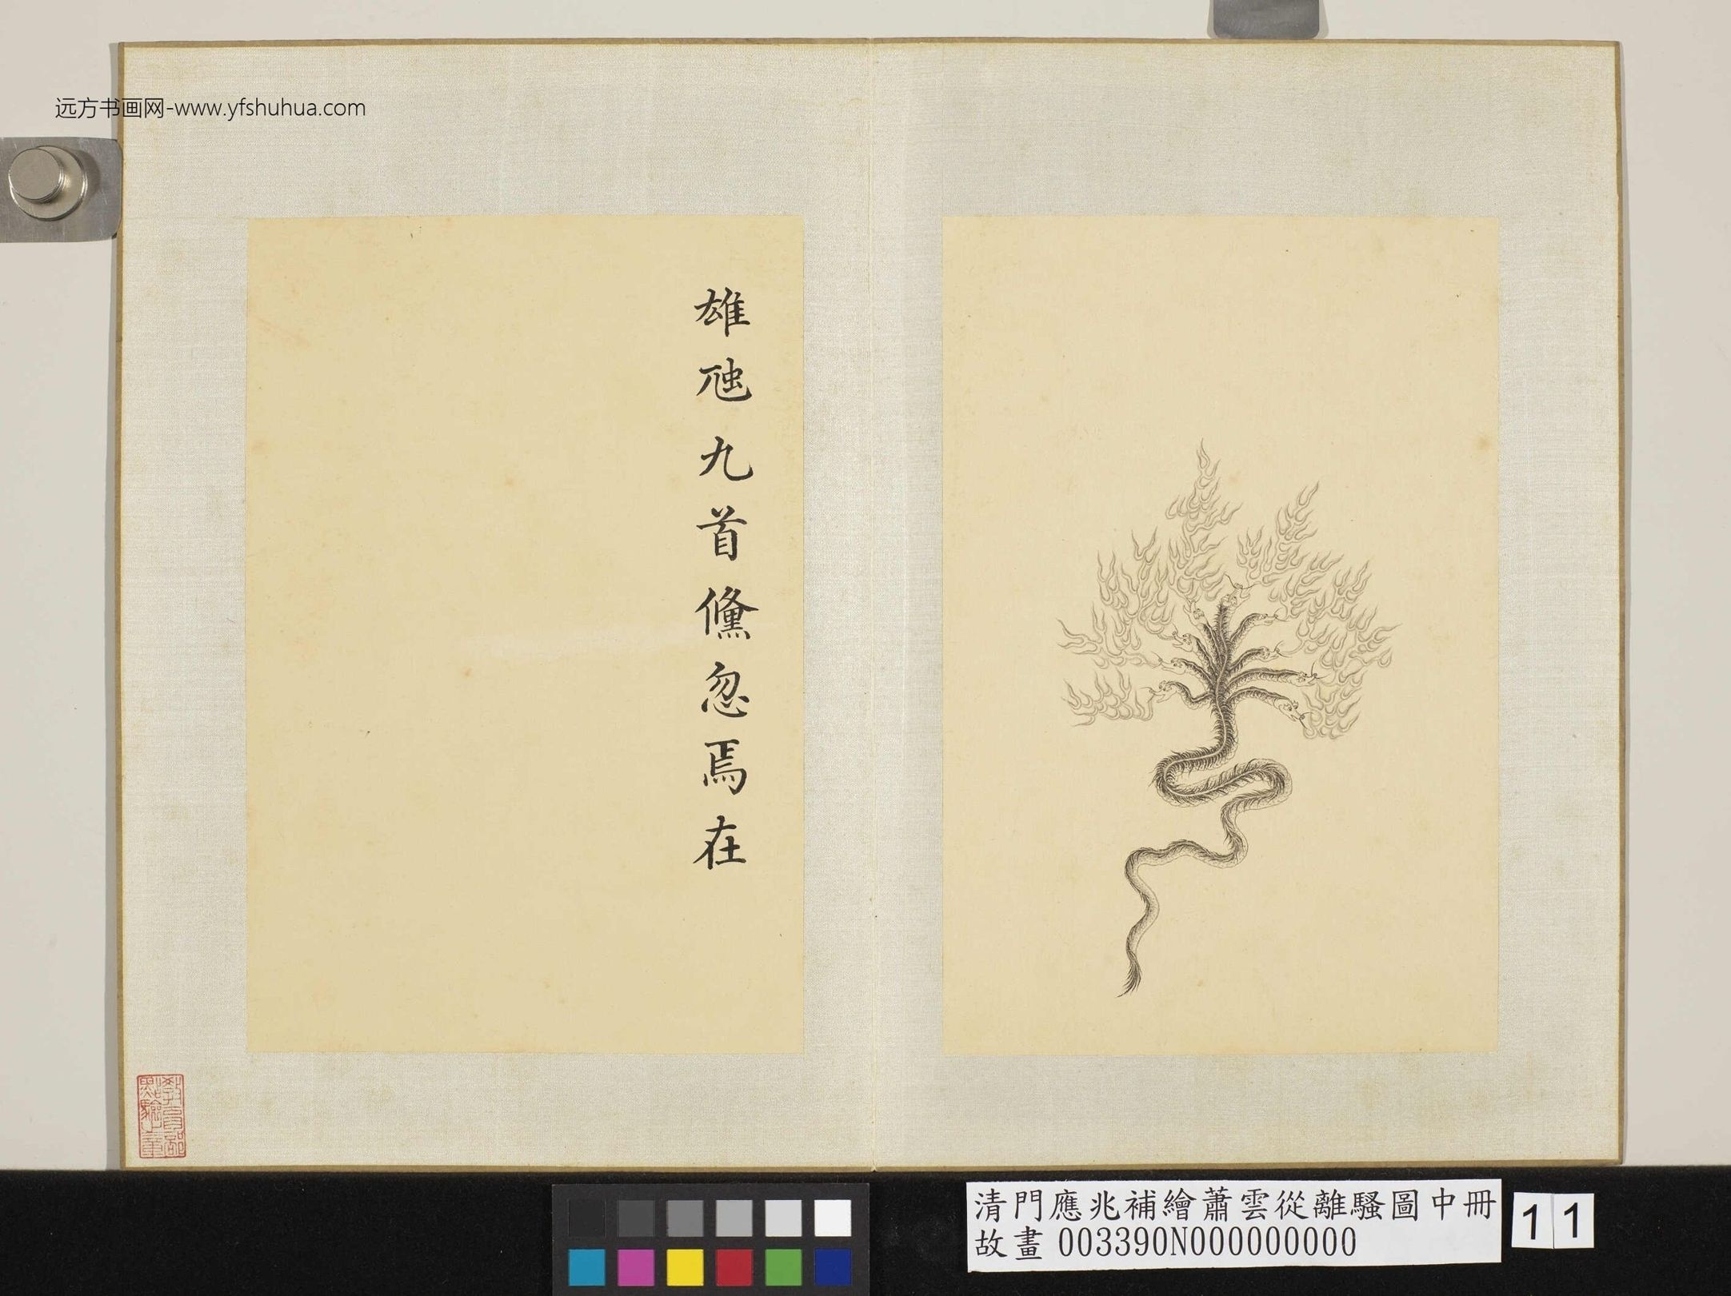 远方书画网-www.yfshuhua.com
雄虺九首儵忽焉在
教育部
點驗之章
清門應兆補繪蕭雲從離騷圖中冊
故畫 003390N000000000
11